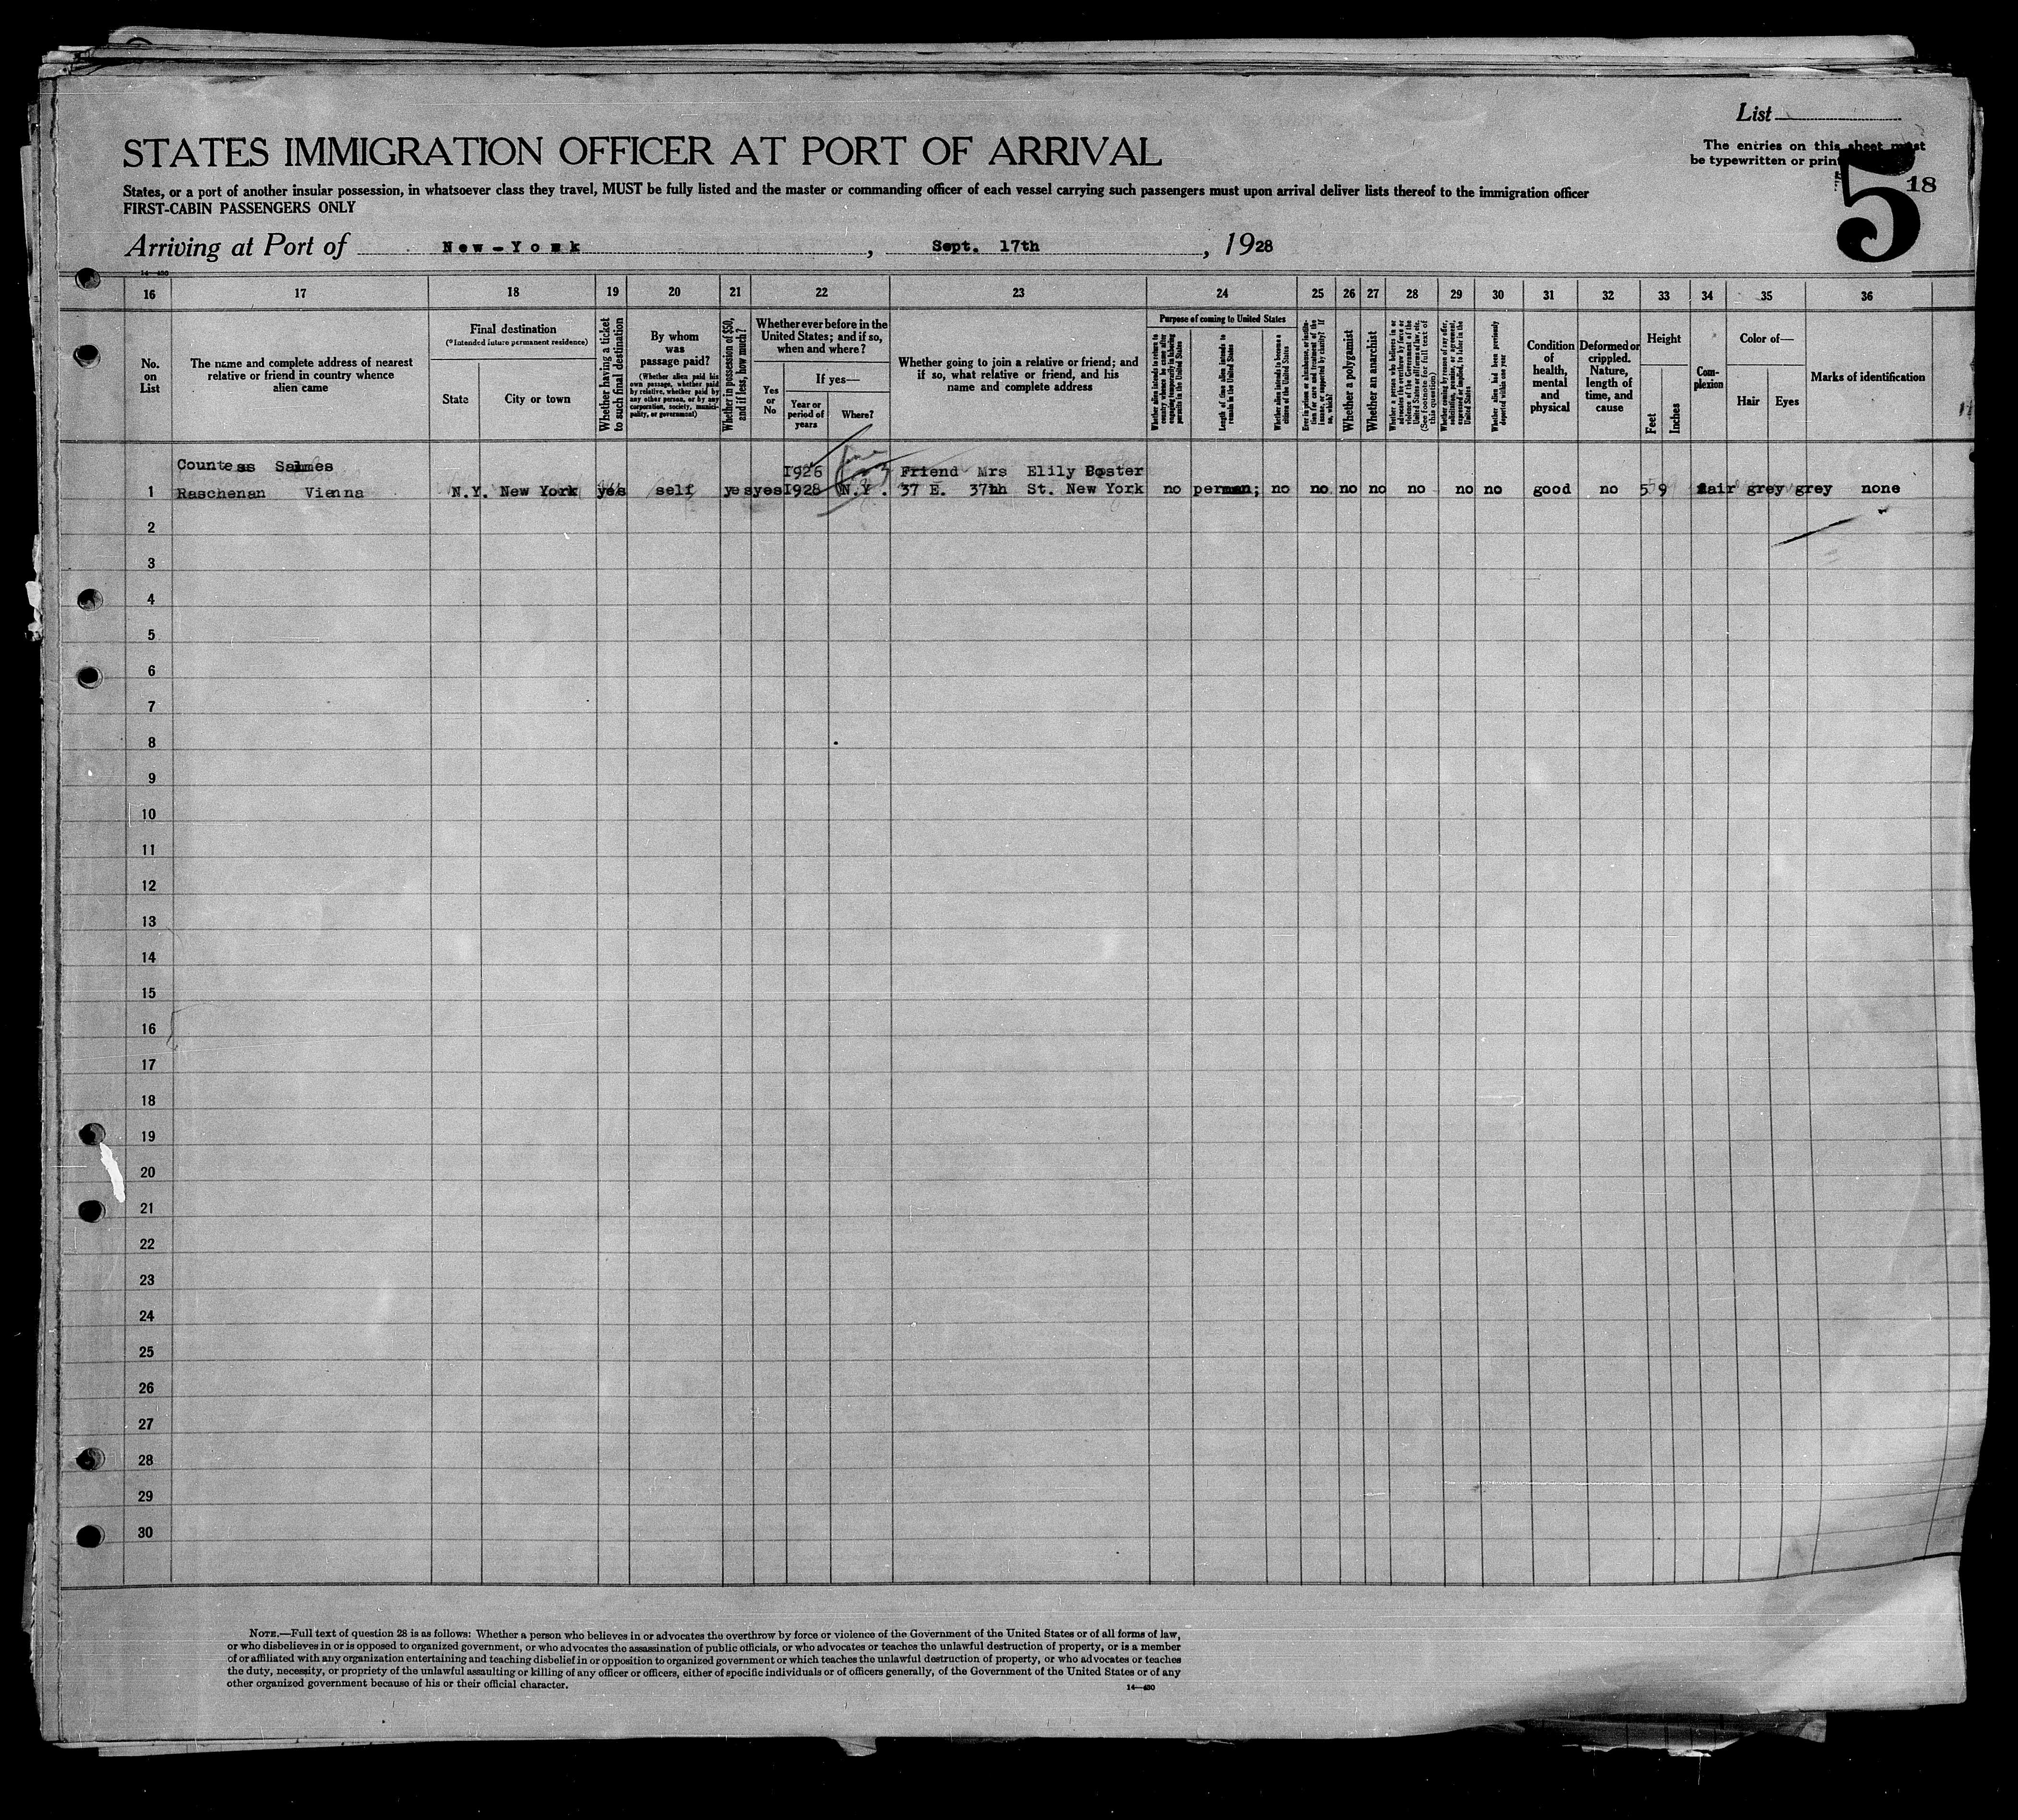 List
STATES IMMIGRATION OFFICER AT PORT OF ARRIVAL
The entries on this sheet must
be typewritten or print
5
18
States, or a port of another insular possession, in whatsoever class they travel, MUST be fully listed and the master or commanding officer of each vessel carrying such passengers must upon arrival deliver lists thereof to the immigration officer
FIRST-CABIN PASSENGERS ONLY
Arriving at Port of New-York, Sept. 17th, 1928
14—430
16 17 18 19 20 21 22 23 24 25 26 27 28 29 30 31 32 33 34 35 36
No. on List
The name and complete address of nearest
relative or friend in country whence
alien came
Final destination
(*Intended future permanent residence)
State
City or town
Whether having a ticket to such final destination
By whom
was
passage paid?
(Whether alien paid his
own passage, whether paid
by relative, whether paid by
any other person, or by any
corporation, society, munici-
pality, or government)
Whether in possession of $50,
and if less, how much?
Whether ever before in the
United States; and if so,
when and where?
Yes or No
If yes—
Year or period of years
Where?
Whether going to join a relative or friend; and
if so, what relative or friend, and his
name and complete address
Purpose of coming to United States
Whether alien intends to return to country whence he came after engaging temporarily in laboring pursuits in the United States
Length of time alien intends to remain in the United States
Whether alien intends to become a citizen of the United States
Ever in prison or almshouse, or institution for care and treatment of the insane, or supported by charity? If so, which?
Whether a polygamist
Whether an anarchist
Whether a person who believes in or advocates the overthrow by force or violence of the Government of the United States or all forms of law, etc. (See footnote for full text of this question)
Whether coming by reason of any offer, solicitation, promise, or agreement, expressed or implied, to labor in the United States
Whether alien had been previously deported within one year
Condition of health, mental and physical
Deformed or crippled. Nature, length of time, and cause
Height
Feet
Inches
Com-
plexion
Color of—
Hair
Eyes
Marks of identification
Countess Salmes 1926 Friend Mrs Elily Boster
1 Raschenan Vienna N.Y. New York yes self yes yes 1928 N.Y. 37 E. 37th St. New York no perman; no no no no no no no good no 5 9 fair grey grey none
2
3
4
5
6
7
8
9
10
11
12
13
14
15
16
17
18
19
20
21
22
23
24
25
26
27
28
29
30
NOTE.—Full text of question 28 is as follows: Whether a person who believes in or advocates the overthrow by force or violence of the Government of the United States or of all forms of law,
or who disbelieves in or is opposed to organized government, or who advocates the assassination of public officials, or who advocates or teaches the unlawful destruction of property, or is a member
of or affiliated with any organization entertaining and teaching disbelief in or opposition to organized government or which teaches the unlawful destruction of property, or who advocates or teaches
the duty, necessity, or propriety of the unlawful assaulting or killing of any officer or officers, either of specific individuals or of officers generally, of the Government of the United States or of any
other organized government because of his or their official character.
14—430